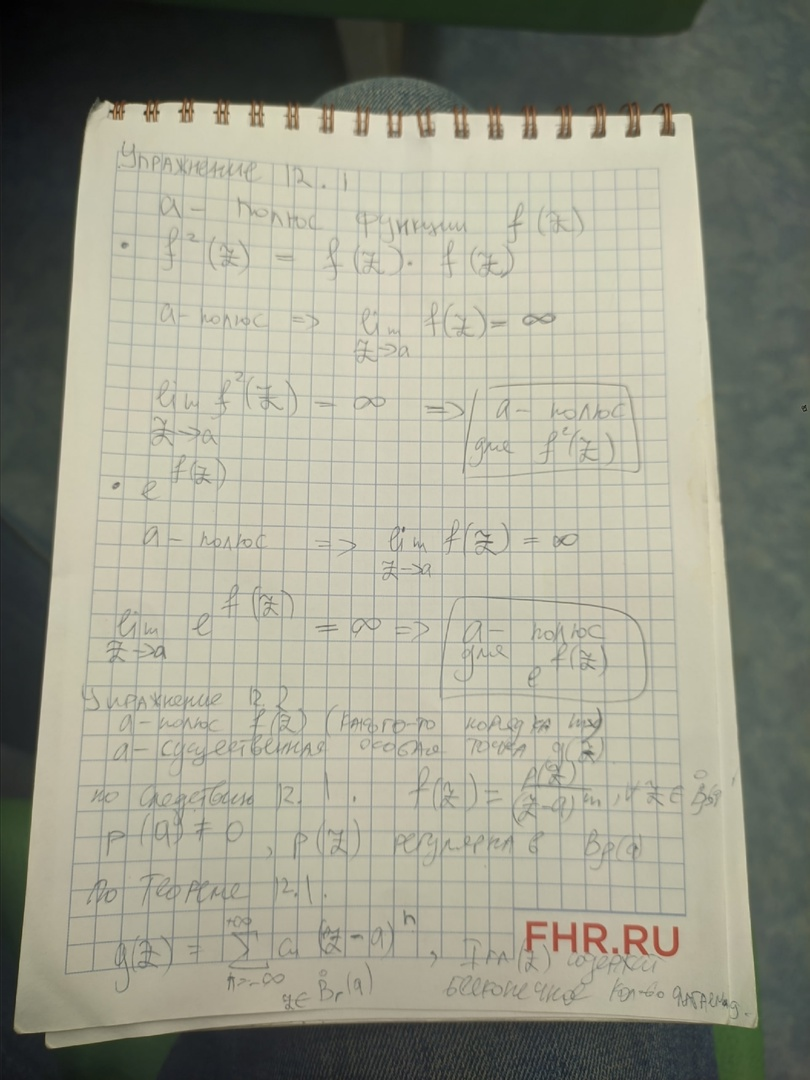 Упражнение 12.1
a - полюс функции f(z)
• f²(z) = f(z)· f(z)
a - полюс => lim f(z) = ∞
z→a
lim f²(z) = ∞ => a - полюс
z→a для f²(z)
• e^f(z)
a - полюс => lim f(z) = ∞
z→a
lim e^f(z) = ∞ => a - полюс
z→a для e^f(z)
Упражнение 12.2
a - полюс f(z) (какого-то порядка m)
a - существенная особая точка g(z)
по следствию 12.1. f(z) = p(z)/(z-a)^m, ∀ z ∈ B̊ρ(a)
p(a) ≠ 0, p(z) регулярна в Bρ(a)
По Теореме 12.1.
g(z) = ∑ cn (z-a)^n, содержит
n=-∞ +∞ z∈ B̊r(a) бесконечное кол-во
FHR.RU